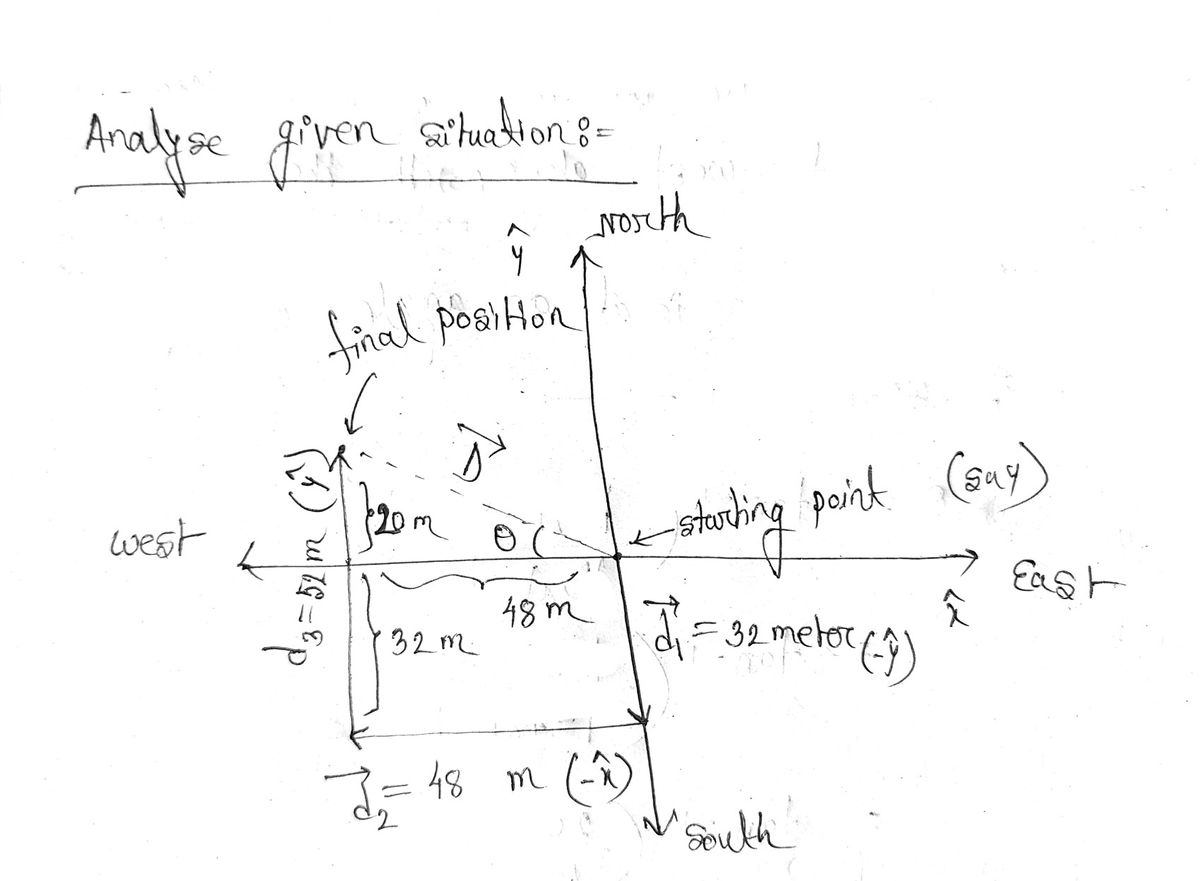 Analyse given situation :=
North
ŷ
final position
D⃗
d₃ = 52 m (ŷ)
20 m
θ
starting point (say)
west
East
x̂
48 m
32 m
d⃗₁ = 32 meter (-ŷ)
d⃗₂ = 48 m (-x̂)
south